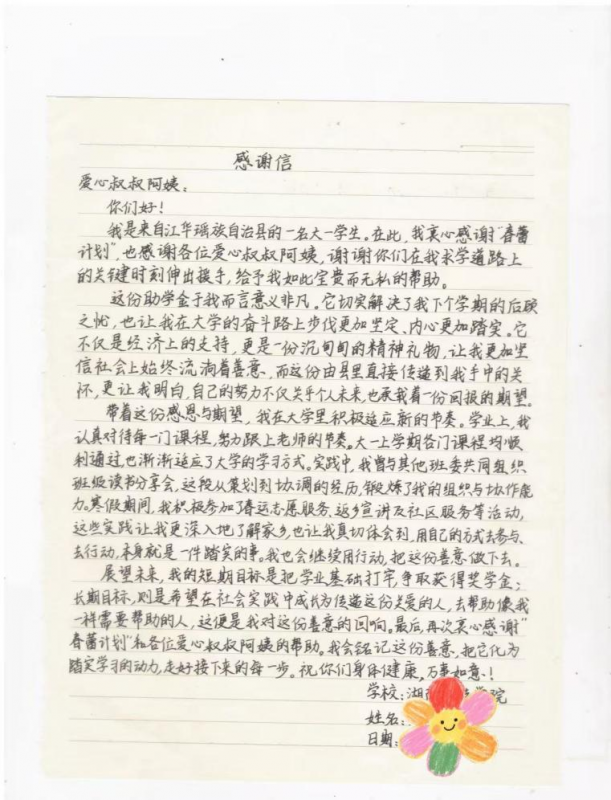 感谢信
爱心叔叔阿姨：
你们好！
我是来自江华瑶族自治县的一名大一学生。在此，我衷心感谢“春蕾
计划”，也感谢各位爱心叔叔阿姨，谢谢你们在我求学道路上
的关键时刻伸出援手，给予我如此宝贵而无私的帮助。
这份助学金于我而言意义非凡。它切实解决了我下个学期的后顾
之忧，也让我在大学的奋斗路上步伐更加坚定、内心更加踏实。它
不仅是经济上的支持，更是一份沉甸甸的精神礼物，让我更加坚
信社会上始终流淌着善意。而这份由县里直接传递到我手中的关
怀，更让我明白，自己的努力不仅关乎个人未来，也承载着一份回报的期望。
带着这份感恩与期望，我在大学里积极适应新的节奏。学业上，我
认真对待每一门课程，努力跟上老师的节奏。大一上学期各门课程均顺
利通过，也渐渐适应了大学的学习方式。实践中，我曾与其他班委共同组织
班级读书分享会，这段从策划到协调的经历，锻炼了我的组织与协作能
力。寒假期间，我积极参加了春运志愿服务、返乡宣讲及社区服务等活动，
这些实践让我更深入地了解家乡，也让我真切体会到，用自己的方式去参与、
去行动，本身就是一件踏实的事。我也会继续用行动，把这份善意做下去。
展望未来，我的短期目标是把学业基础打牢，争取获得奖学金；
长期目标，则是希望在社会实践中成长为传递这份关爱的人，去帮助像我
一样需要帮助的人，这便是我对这份善意的回响。最后，再次衷心感谢“
春蕾计划”和各位爱心叔叔阿姨的帮助。我会铭记这份善意，把它化为
踏实学习的动力，走好接下来的每一步。祝你们身体健康，万事如意！
学校：湖 学院
姓名：
日期：